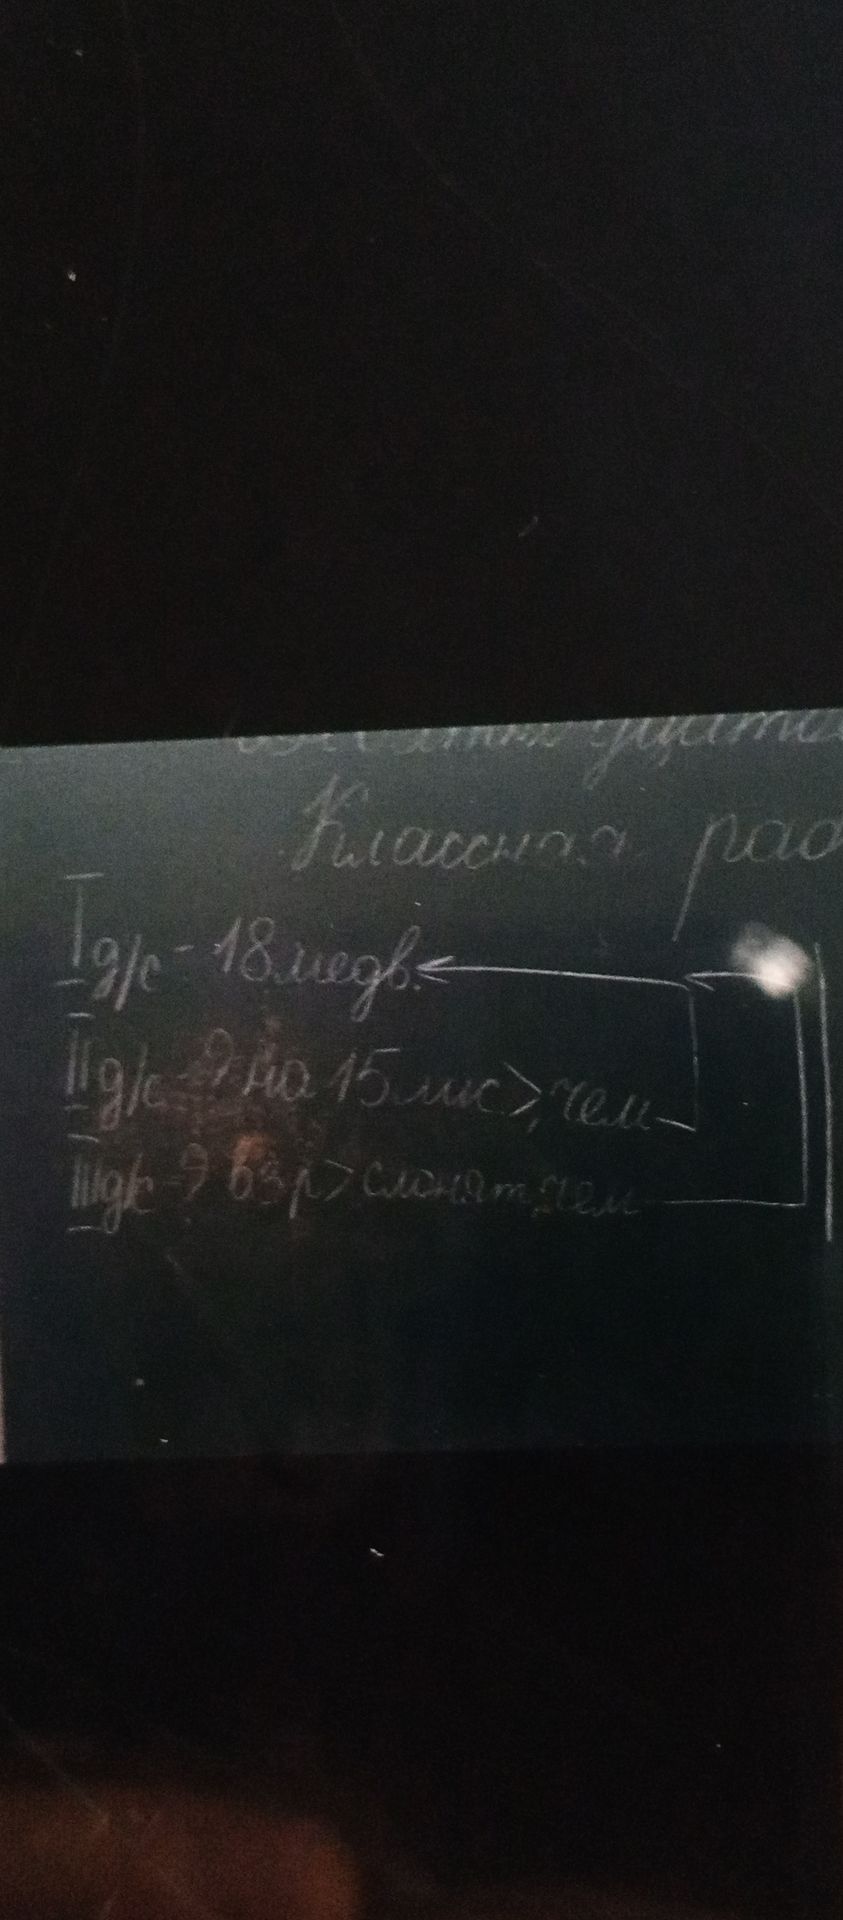 Классная раб
I д/с - 18 медв.
II д/с - ? на 15 лис >, чем
III д/с - ? в 3 р > слонят, чем